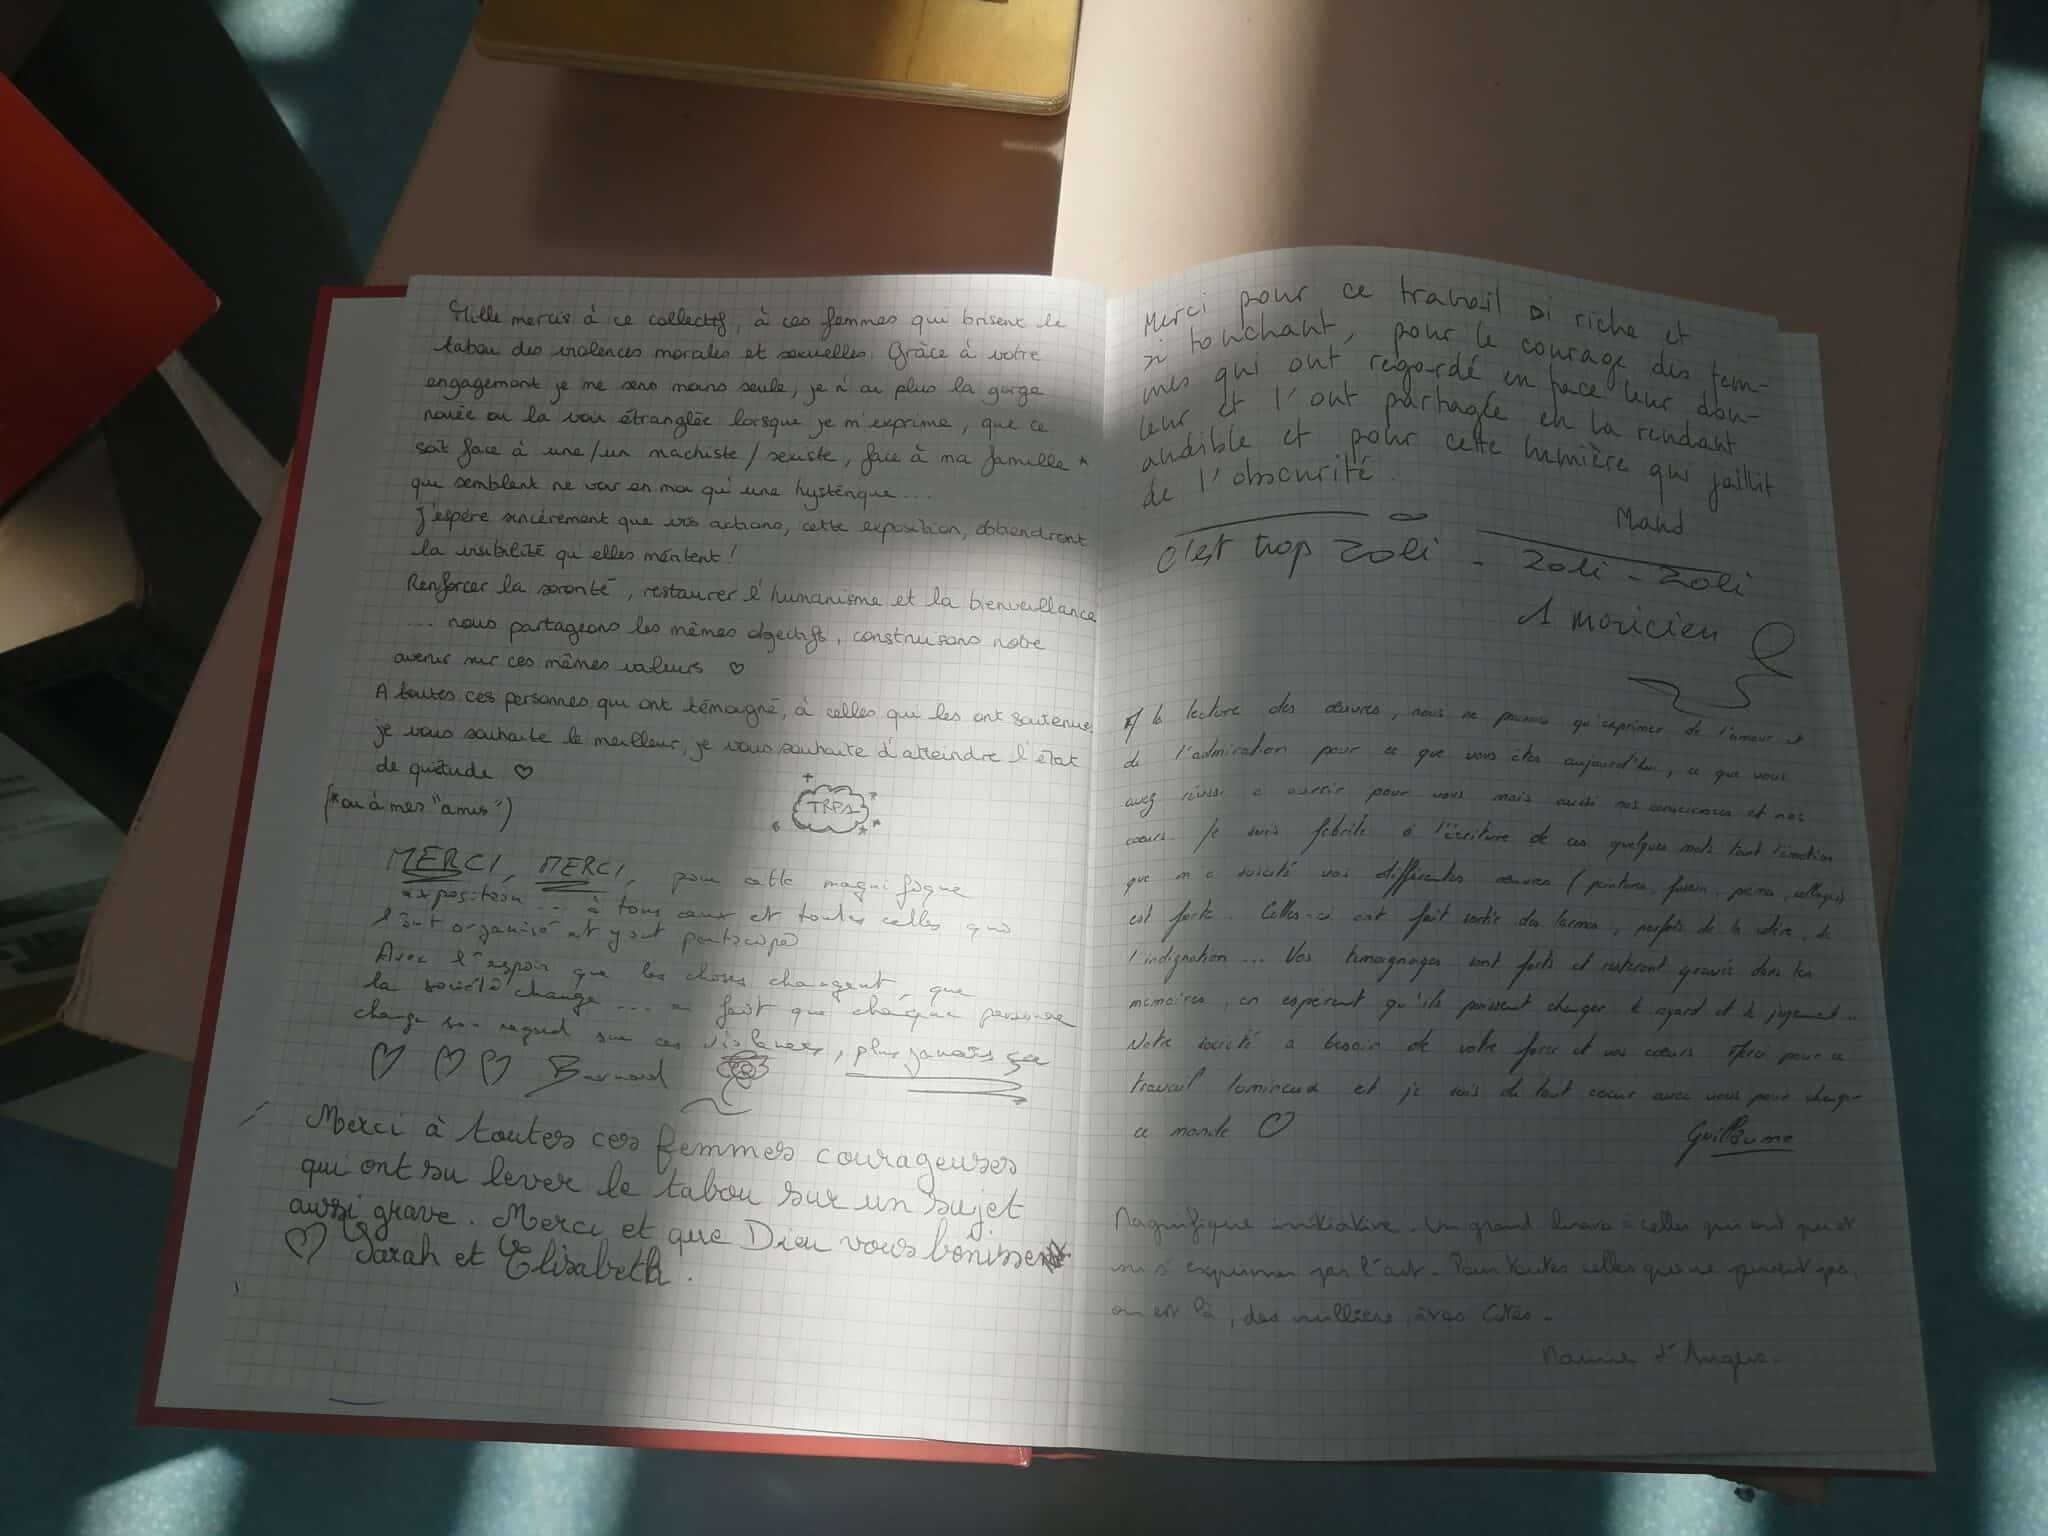 Mille mercis à ce collectif, à ces femmes qui brisent le
tabou des violences morales et sexuelles. Grâce à votre
engagement je me sens moins seule, je n'ai plus la gorge
nouée ou la voix étranglée lorsque je m'exprime, que ce
soit face à une/un machiste/sexiste, face à ma famille *
qui semblent ne voir en moi qu'une hystérique...
J'espère sincèrement que vos actions, cette exposition, obtiendront
la visibilité qu'elles méritent !
Renforcer la sororité, restaurer l'humanisme et la bienveillance
... nous partageons les mêmes objectifs, construisons notre
avenir sur ces mêmes valeurs ♡
A toutes ces personnes qui ont témoigné, à celles qui les ont soutenues
je vous souhaite le meilleur, je vous souhaite d'atteindre l'état
de quiétude ♡
(*ou à mes "amis")
MERCI, MERCI, pour cette magnifique
exposition... à tous ceux et toutes celles qui
l'ont organisé et y ont participé
Avec l'espoir que les choses changent, que
la société change... en fait que chaque personne
change son regard sur ces violences, plus jamais ça
♡ ♡ ♡ Bernard
Merci à toutes ces femmes courageuses
qui ont su lever le tabou sur un sujet
aussi grave. Merci et que Dieu vous bénisse
♡ Sarah et Elisabeth.
Merci pour ce travail si riche et
si touchant, pour le courage des fem-
mes qui ont regardé en face leur dou-
leur et l'ont partagée en la rendant
audible et pour cette lumière qui jaillit
de l'obscurité.
c'est trop zoli - zoli - zoli
1 moricien
la lecture des œuvres, nous ne pouvons qu'exprimer de l'amour et
de l'admiration pour ce que vous êtes aujourd'hui, ce que vous
avez réussi à ouvrir pour vous mais aussi nos consciences et nos
cœurs. Je suis fébrile à l'écriture de ces quelques mots tant l'émotion
que m'a suscité vos différentes œuvres (peinture, fusain, poème, collages)
est forte. Celles-ci ont fait sortir des larmes, parfois de la colère, de
l'indignation... Vos témoignages sont forts et resteront gravés dans les
mémoires, en espérant qu'ils puissent changer le regard et le jugement...
Notre société a besoin de votre force et vos cœurs Merci pour ce
travail lumineux et je suis de tout cœur avec vous pour changer
ce monde ♡
Guillaume
Magnifique initiative. Un grand bravo à celles qui ont pu et
su s'exprimer par l'art. Pour toutes celles qui ne peuvent pas,
on est là, des milliers, à vos côtés.
d'Angers.